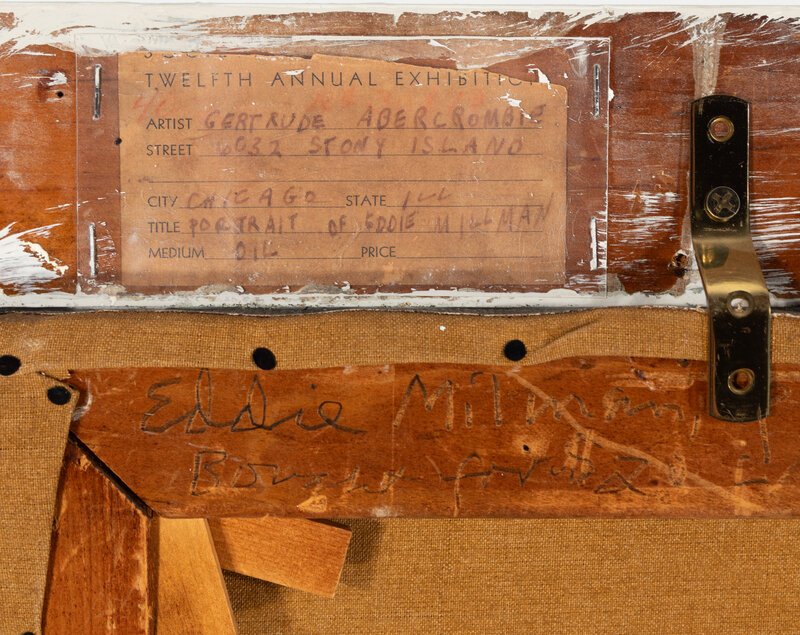 TWELFTH ANNUAL EXHIBITION
ARTIST GERTRUDE ABERCROMBIE
STREET 6032 STONY ISLAND
CITY CHICAGO STATE ILL
TITLE PORTRAIT OF EDDIE MILLMAN
MEDIUM OIL PRICE
Eddie Milman
Bought